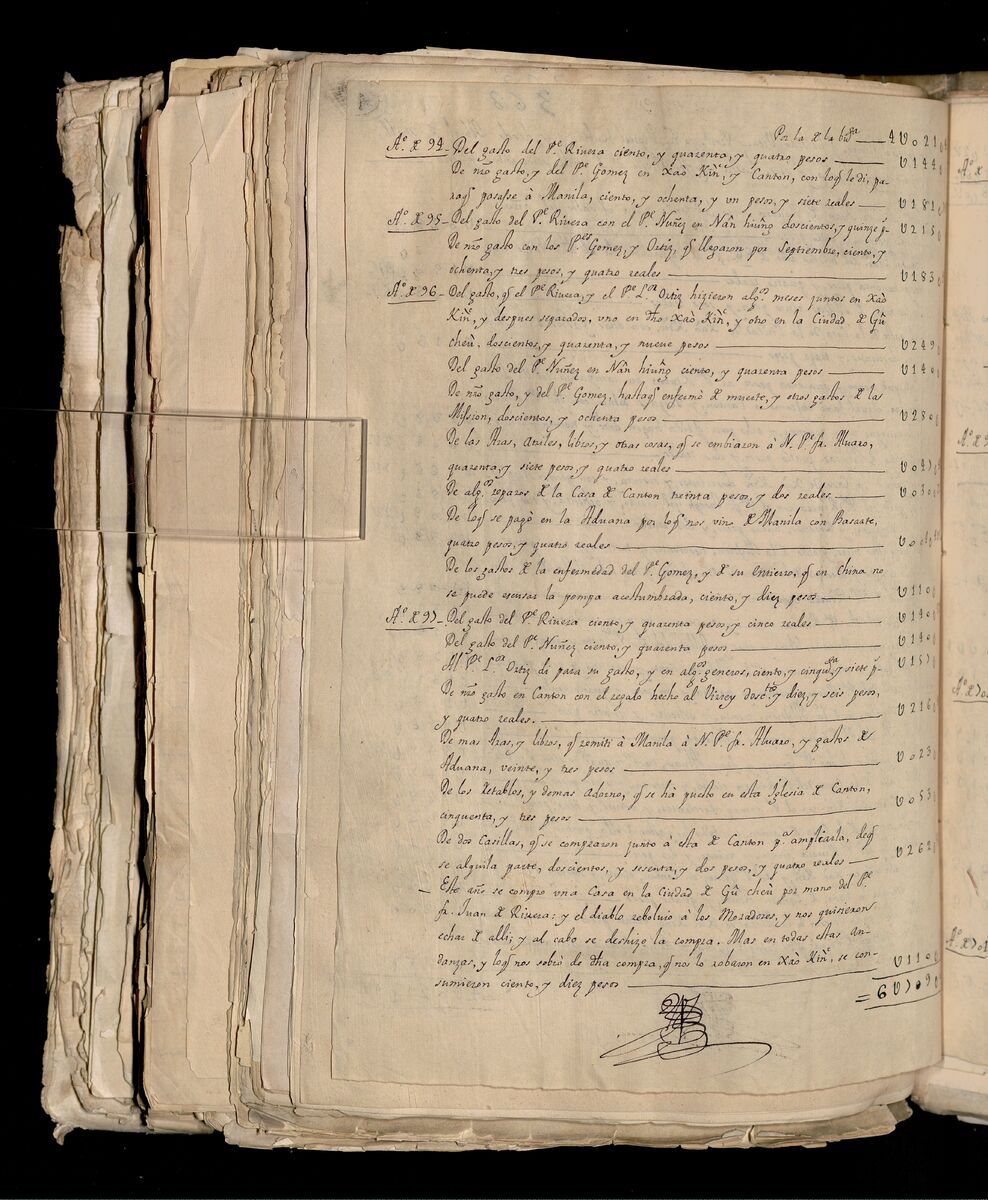 Por la x la bta 4U021
Aº. x 94. Del gasto del Pe. Rivera ciento, y quarenta, y quatro pesos U144
De nro gasto, y del Pe. Gomez en Xaò Kiñ, y Canton, con loq le di, pa-
raq passasse à Manila, ciento, y ochenta, y vn pesos, y siete reales U181
Aº. x 95. Del gasto del Pe. Rivera con el Pe. Nuñez en Nân hiuñg doscientos, y quinze ps. U215
De nro gasto con los Pes. Gomez, y Ortiz, q llegaron por Septiembre, ciento, y
ochenta, y tres pesos, y quatro reales U183
Aº. x 96. Del gasto, q el Pe Rivera, y el Pe. Lor. Ortiz hizieron algos. meses juntos en Xaò
Kiñ, y despues separados, vno en dho Xaò Kiñ, y otro en la Ciudad x Gû
cheù, doscientos, y quarenta, y nueve pesos U249
Del gasto del Pe. Nuñez en Nân hiuñg ciento, y quarenta pesos U140
De nro gasto, y del Pe. Gomez, hastaq enfermò x muerte, y otros gastos x las
Mission, doscientos, y ochenta pesos U280
De las Aras, Atriles, libros, y otras cosas, q se embiaron à N. Pe. fr. Alvaro,
quarenta, y siete pesos, y quatro reales U047
De algos. reparos x la Casa x Canton treinta pesos, y dos reales U030
De loq se pagò en la Aduana por loq nos vino x Manila con Basarte,
quatro pesos, y quatro reales U004
De los gastos x la enfermedad del Pe. Gomez, y x su Entierro, q en China no
se puede escusar la pompa acostumbrada, ciento, y diez pesos U110
Aº. x 97. Del gasto del Pe. Rivera ciento, y quarenta pesos, y cinco reales U140
Del gasto del Pe. Nuñez ciento, y quarenta pesos U140
Al Pe. Lor. Ortiz di para su gasto, y en algos. generos, ciento, y cinquta, y siete ps. U157
De nro gasto en Canton con el regalo hecho al Virrey dosctos y diez, y seis pesos,
y quatro reales. U216
De mas Aras, y libros, q remiti à Manila à N. Pe fr. Alvaro, y gastos x
Aduana, veinte, y tres pesos U023
De los Retablos, y demas Adorno, q se hà puesto en esta Iglesia x Canton,
cinquenta, y tres pesos U053
De dos Casillas, q se compraron junto à esta x Canton pa. ampliarla, deq
se alquila parte, doscientos, y sesenta, y dos pesos, y quatro reales U262
Este año se compro vna Casa en la Ciudad x Gû cheù por mano del Pe.
fr. Juan x Rivera: y el diablo reboluio à los Moradores, y nos quisieron
echar x alli; y al cabo se deshizo la compra. Mas en todas estas an-
danzas, y loq nos sobrò de dha compra, q nos lo robaron en Xaò Kiñ, se con-
sumieron ciento, y diez pesos U110
= 6U709